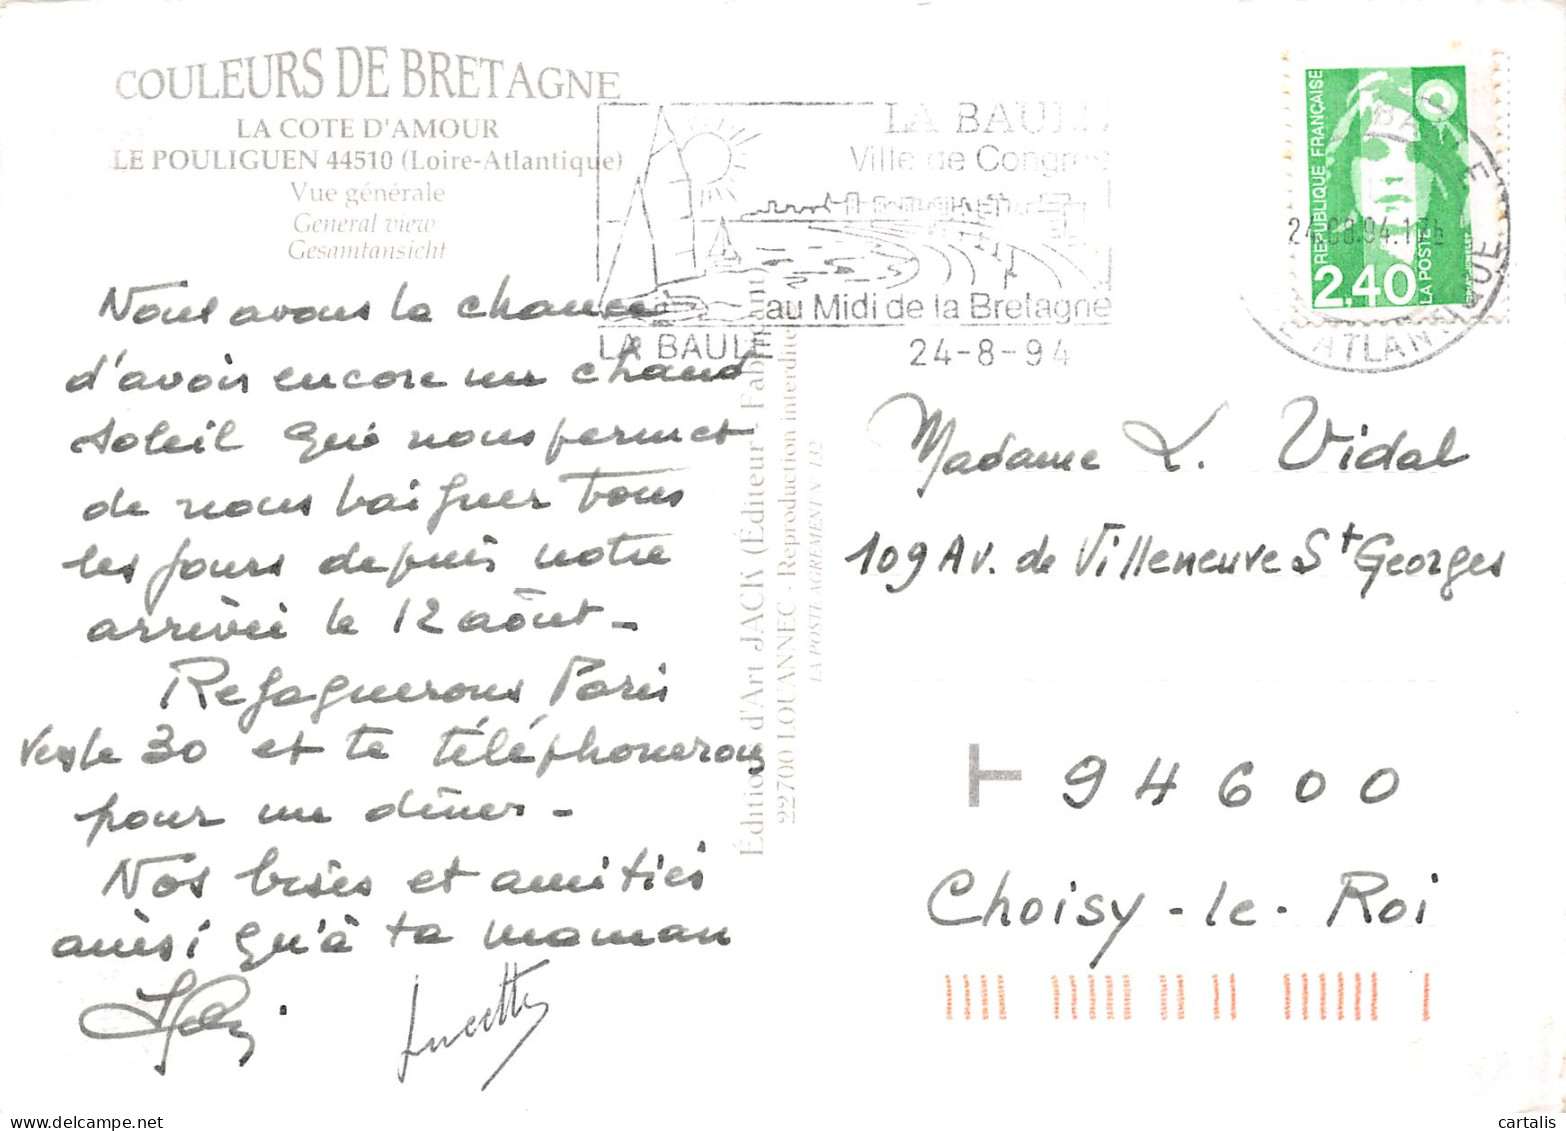 COULEURS DE BRETAGNE
LA COTE D'AMOUR
LE POULIGUEN 44510 (Loire-Atlantique)
Vue générale
General view
Gesamtansicht
LA BAULE
Ville de Congrès
au Midi de la Bretagne
LA BAULE
24-8-94
REPUBLIQUE FRANÇAISE
2,40
LA POSTE
ATLANTIQUE
Nous avons la chance
d'avoir encore un chaud
soleil qui nous permet
de nous baigner tous
les jours depuis notre
arrivée le 12 aôut -
Regagnerons Paris
vers le 30 et te téléphonerons
pour un dîner -
Nos bises et amitiés
ainsi qu'à ta maman
Lucette
Éditions d'Art JACK (Éditeur - Fabricant)
22700 LOUANNEC - Reproduction interdite
LA POSTE AGREMENT N° 132
Madame L. Vidal
109 Av. de Villeneuve St Georges
T 94600
Choisy-le-Roi
cartalis